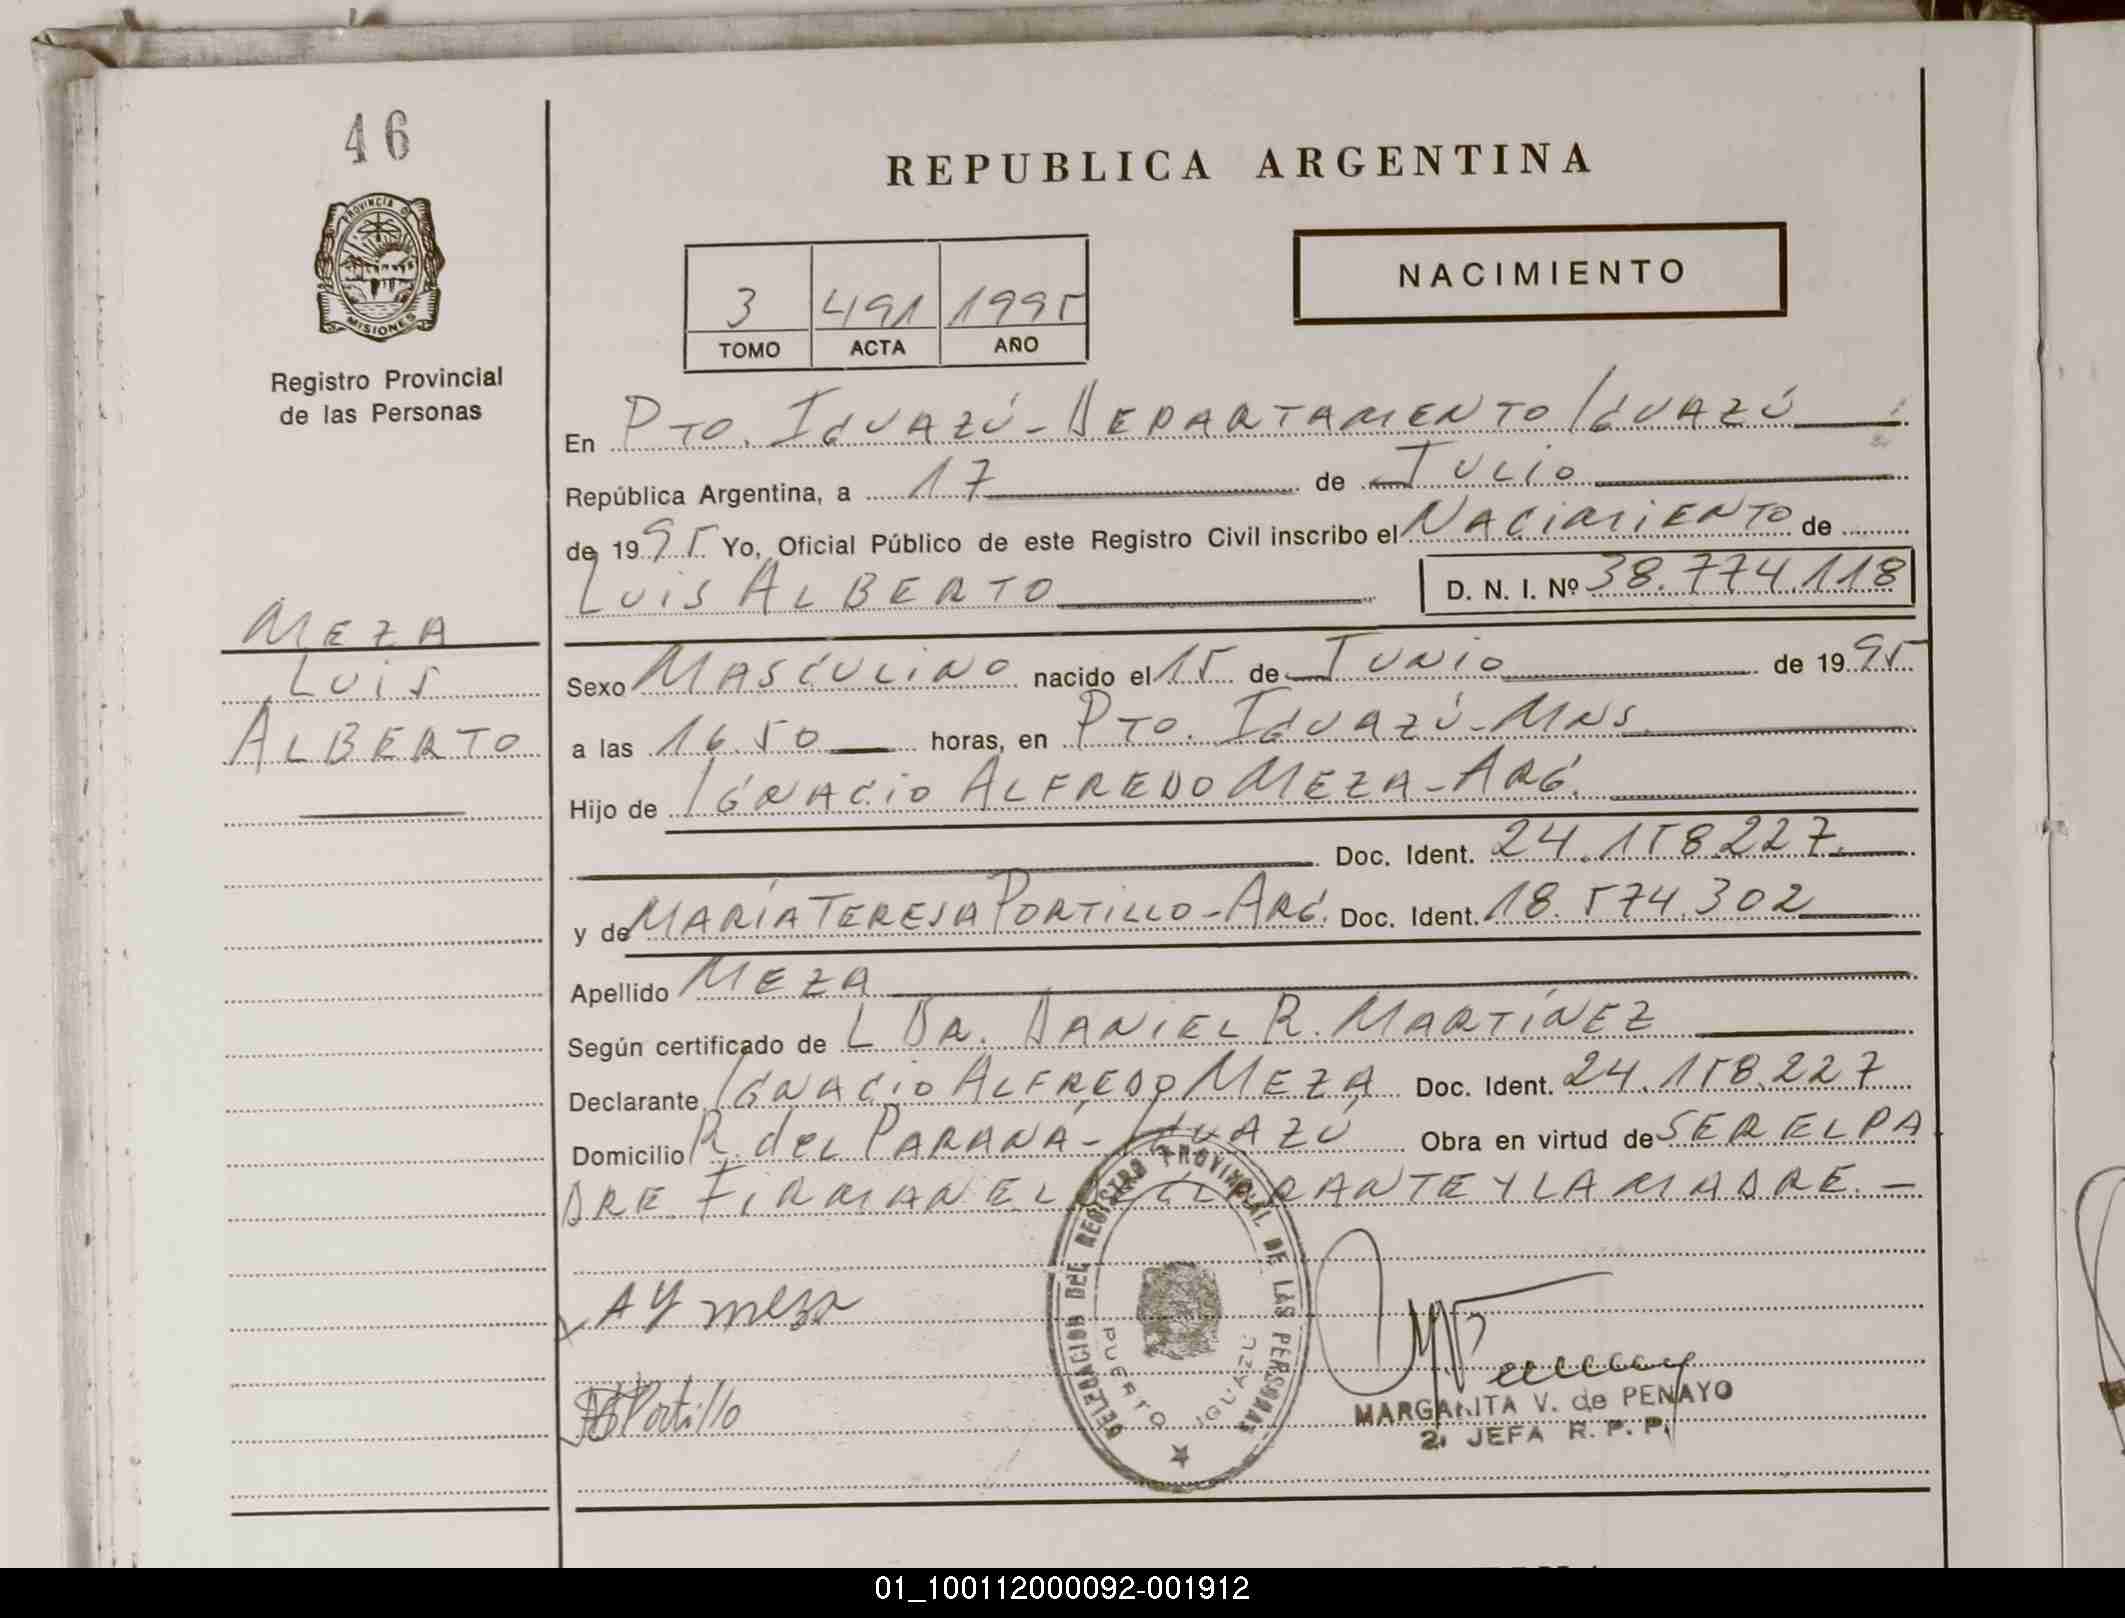 46
PROVINCIA DE
MISIONES
Registro Provincial
de las Personas
REPUBLICA ARGENTINA
NACIMIENTO
3 491 1995
TOMO ACTA AÑO
En PTO. IGUAZÚ - DEPARTAMENTO IGUAZÚ
República Argentina, a 17 de JULIO
de 1995 Yo, Oficial Público de este Registro Civil inscribo el NACIMIENTO de
LUIS ALBERTO D. N. I. Nº 38.774.118
MEZA
LUIS
ALBERTO
Sexo MASCULINO nacido el 15 de JUNIO de 1995
a las 16.50 horas, en PTO. IGUAZÚ - MNS.
Hijo de IGNACIO ALFREDO MEZA - ARG.
Doc. Ident. 24.158.227.
y de MARÍA TERESA PORTILLO - ARG. Doc. Ident. 18.574.302
Apellido MEZA
Según certificado de L DR. DANIEL R. MARTÍNEZ
Declarante IGNACIO ALFREDO MEZA Doc. Ident. 24.158.227
Domicilio R. del PARANÁ - IGUAZÚ Obra en virtud de SER EL PA
DRE. FIRMAN EL DECLARANTE Y LA MADRE. -
DELEGACION DEL REGISTRO PROVINCIAL DE LAS PERSONAS
PUERTO IGUAZU
meza
Portillo
MARGARITA V. de PENAYO
2ª JEFA R. P. P.
01_100112000092-001912